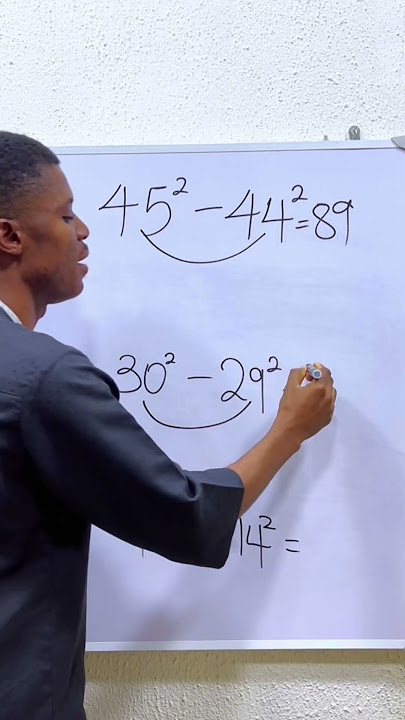 45² - 44² = 89
30² - 29²
14² =